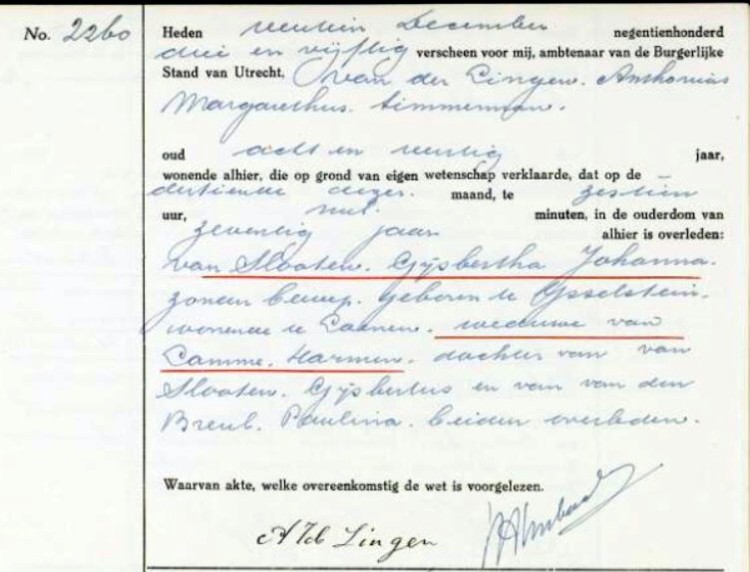 No. 2260
Heden veertien December negentienhonderd
drie en vijftig verscheen voor mij, ambtenaar van de Burgerlijke
Stand van Utrecht, van der Lingen. Anthonius
Margarethus. timmerman.
oud acht en veertig jaar,
wonende alhier, die op grond van eigen wetenschap verklaarde, dat op de
dertiende dezer. maand, te zestien
uur, nul. minuten, in de ouderdom van
zeventig jaar alhier is overleden:
van Slooten. Gijsbertha Johanna.
zonder beroep. geboren te IJsselstein.
wonende te Loenen. weduwe van
Lamme. Harmen. dochter van van
Slooten. Gijsbertus en van van den
Breul. Paulina. beiden overleden.
Waarvan akte, welke overeenkomstig de wet is voorgelezen.
Lingen